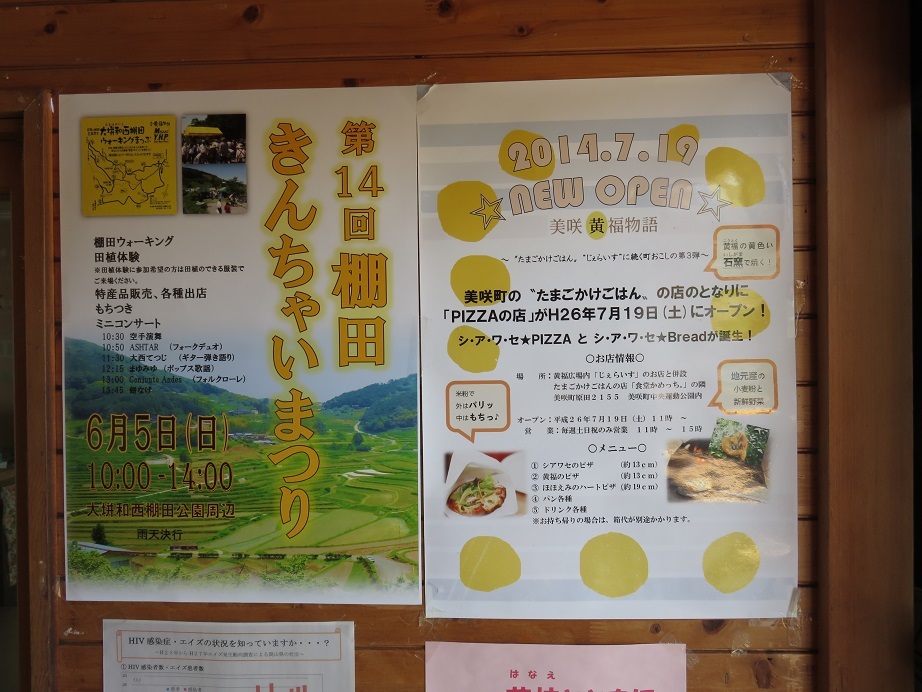 大垪和西棚田
ウォーキングまっぷ
第14回棚田
きんちゃいまつり
棚田ウォーキング
田植体験
※田植体験に参加希望の方は田植のできる服装で
ご来場ください。
特産品販売、各種出店
もちつき
ミニコンサート
10:30 空手演舞
10:50 ASHTAR (フォークデュオ)
11:30 大西てつじ (ギター弾き語り)
12:15 まゆみゆ (ポップス歌謡)
13:00 Conjunto Andes (フォルクローレ)
13:45 餅なげ
6月5日(日)
10:00-14:00
大垪和西棚田公園周辺
雨天決行
2014.7.19
☆NEW OPEN☆
美咲 黄福物語
～〝たまごかけごはん〟〝じぇらいす〟に続く町おこしの第3弾～
黄福の黄色い
いしがま
石窯で焼く!
美咲町の〝たまごかけごはん〟の店のとなりに
「PIZZAの店」がH26年7月19日(土)にオープン!
シ・ア・ワ・セ★PIZZA と シ・ア・ワ・セ★Breadが誕生!
〇お店情報〇
場 所:黄福広場内「じぇらいす」のお店と併設
たまごかけごはんの店「食堂かめっち。」の隣
美咲町原田2155 美咲町中央運動公園内
オープン:平成26年7月19日(土)11時 ～
営 業:毎週土日祝のみ営業 11時 ～ 15時
米粉で
外はパリッ
中はもちっ♪
地元産の
小麦粉と
新鮮野菜
〇メニュー〇
① シアワセのピザ (約13cm)
② 黄福のピザ (約13cm)
③ ほほえみのハートピザ (約19cm)
④ パン各種
⑤ ドリンク各種
※お持ち帰りの場合は、箱代が別途かかります。
HIV感染症・エイズの状況を知っていますか・・・?
①HIV感染者数・エイズ患者数
はなえ